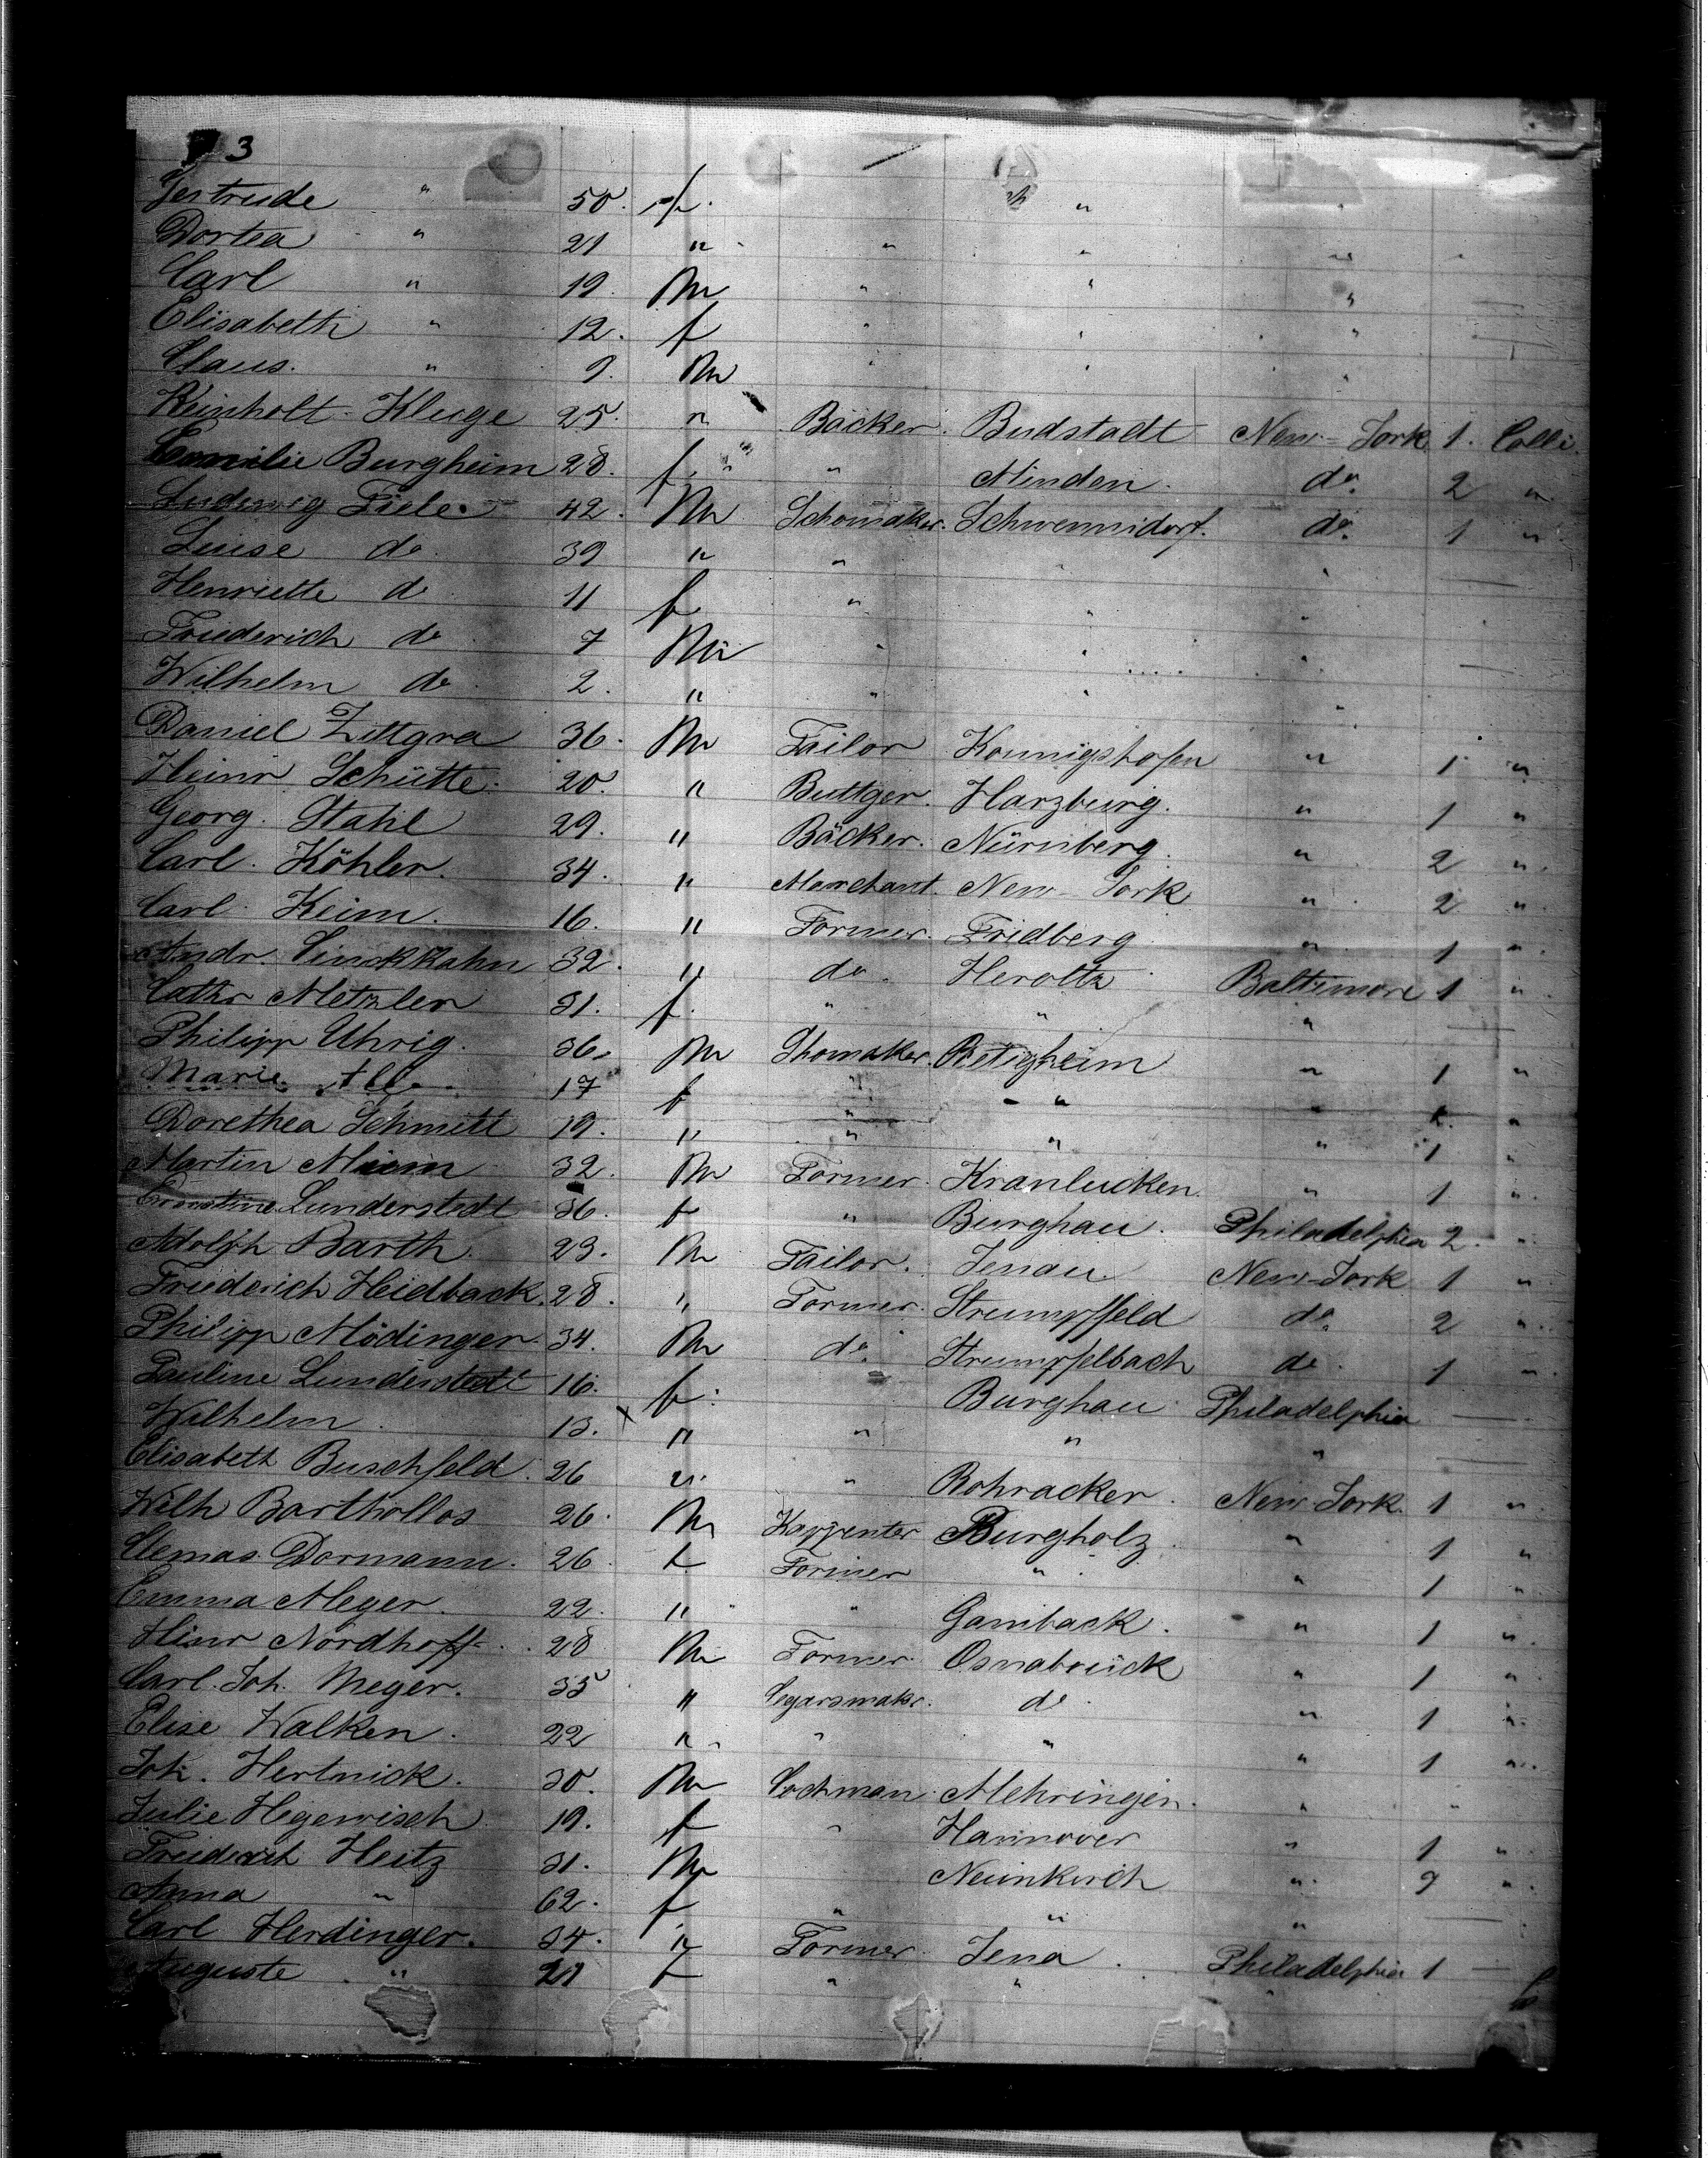 3
Gertrude " 50. f. " "
Dortea " 21 " " " "
Carl " 19. M " " "
Elisabeth " 12. f " " "
Claus. " 9. M " " "
Reinholt Kluge 25. " Bäcker. Budstadt New-York 1. Colli.
Emilie Burgheim 28. f. " Minden. do. 2 "
Ludewig Tiele. 42. M Schomaker. Schwennidorf. do. 1 "
Luise do. 39 " "
Henriette do 11 f " " "
Friederich do 7 M " " "
Wilhelm do. 2. " " " "
Daniel Zittgra 36. M Tailor Konnigshofen " 1 "
Heinr. Schütte. 20. " Buttger. Harzburg. " 1 "
Georg. Stahl 29. " Bäcker. Nürnberg. " 2 "
Carl. Köhler. 34. " Merchant. New-York " 2 "
Carl. Keim. 16. " Former. Fridberg " 1 "
Andr. Sinckkahn 32. " do. Heroltz Baltimore 1 "
Cathr Metzler 31. f. " " "
Philipp Uhrig. 36. M Shomaker. Betigheim " 1 "
Marie 17 f " " " "
Dorethea Schmitt 19. " " " " 1 "
Martin 32. M Former. Kranlucken. " 1 "
Ernstine Lunderstedt 36. f " Burghau. Philadelphia 2. "
Adolph Barth. 23. M Tailor. Jenau. New-York 1 "
Friederich Heidback. 28. " Former. Strumpffeld do. 2 "
Philipp Mödinger. 34. M do. Strumpfelbach do. 1 "
Pauline Lunderstedt 16. f. Burghau Philadelphia
Wilhelm 13. x " " " "
Elisabeth Buschfeld. 26 " " Rohracker. New-York. 1 "
Wilh Barthollos 26. M Kappenter Burgholz " 1 "
Clemas Dormann. 26. f Former " " 1 "
Emma Meger. 22. " " Gamback. " 1 "
Hinr Nordhoff. 28 M Former. Osnabrück " 1 "
Carl. Joh. Meger. 35 " Segarsmakr. do. " 1 "
Elise Walken. 22 " " " " 1 "
Joh. Hertnick. 30. M Cochman Mehringen. " "
Julie Hegewisch 19. f " Hannover " 1 "
Friederich Heitz 31. M Neunkirch " 9 "
Anna " 62. f " " "
Carl Herdinger. 34. " Former. Jena. Philadelphia 1
Auguste " 21 f " "